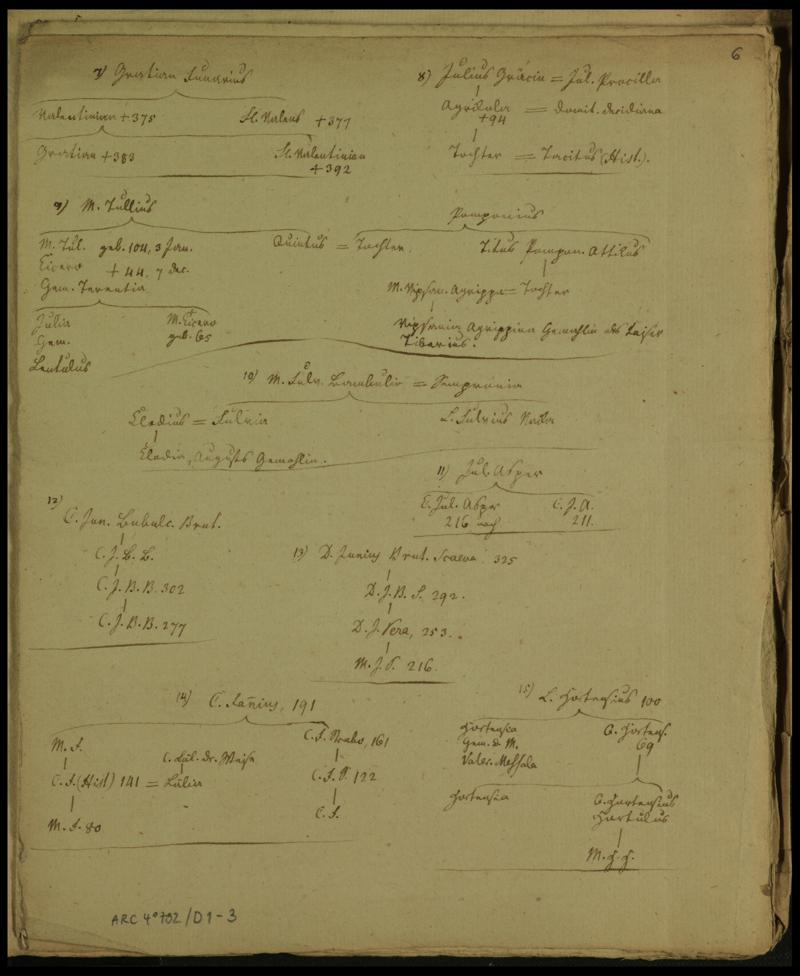 6
7) Gratian Funarius
Valentinian + 375
Fl. Valens + 377
Gratian + 383
Fl. Valentinian
+ 392
8) Julius Gräcin = Jul. Procilla
Agrikola = Domit. Decidiana
+ 94
Tochter = Tacitus (Hist.).
9) M. Tullius
M. Tul. geb. 104, 3 Jan.
Cicero + 44, 7 Dec.
Gem. Terentia
Quintus = Tochter.
Pomponius
Titus Pompon. Attikus
M. Vipsan. Agrippa = Tochter
Vipsania Agrippina Gemahlin des Kaiser
Tiberius.
Julia
Gem.
Lentulus
M. Cicero
geb. 65
10) M. Fulv. Bambulio = Sempronia
Clodius = Fulvia
L. Fulvius
Clodia, Augusts Gemahlin.
11) Jul. Asper
C. Jul. Asper
216 noch
C. J. A.
211.
12)
C. Jun. Bubulc. Brut.
C. J. B. B.
C. J. B. B. 302
C. J. B. B. 277
13) D. Junius Brut. Scaeva. 325
D. J. B. S. 292.
D. J. Pera, 253.
M. J. P. 216.
14) C. Fan̄ius, 191
M. F.
C. F. (Hist) 141 = Lälia
M. F. 80
C. Läl. dr. Weise
C. F. Strabo, 161
C. F. S. 122
C. F.
15) L. Hortensius 100
Hortensia
Gem. d. M.
Valer. Messala
Q. Hortens.
69
Hortensia
Q. Hortensius
Hortulus
M. H. H.
ARC 4° 702/D1-3